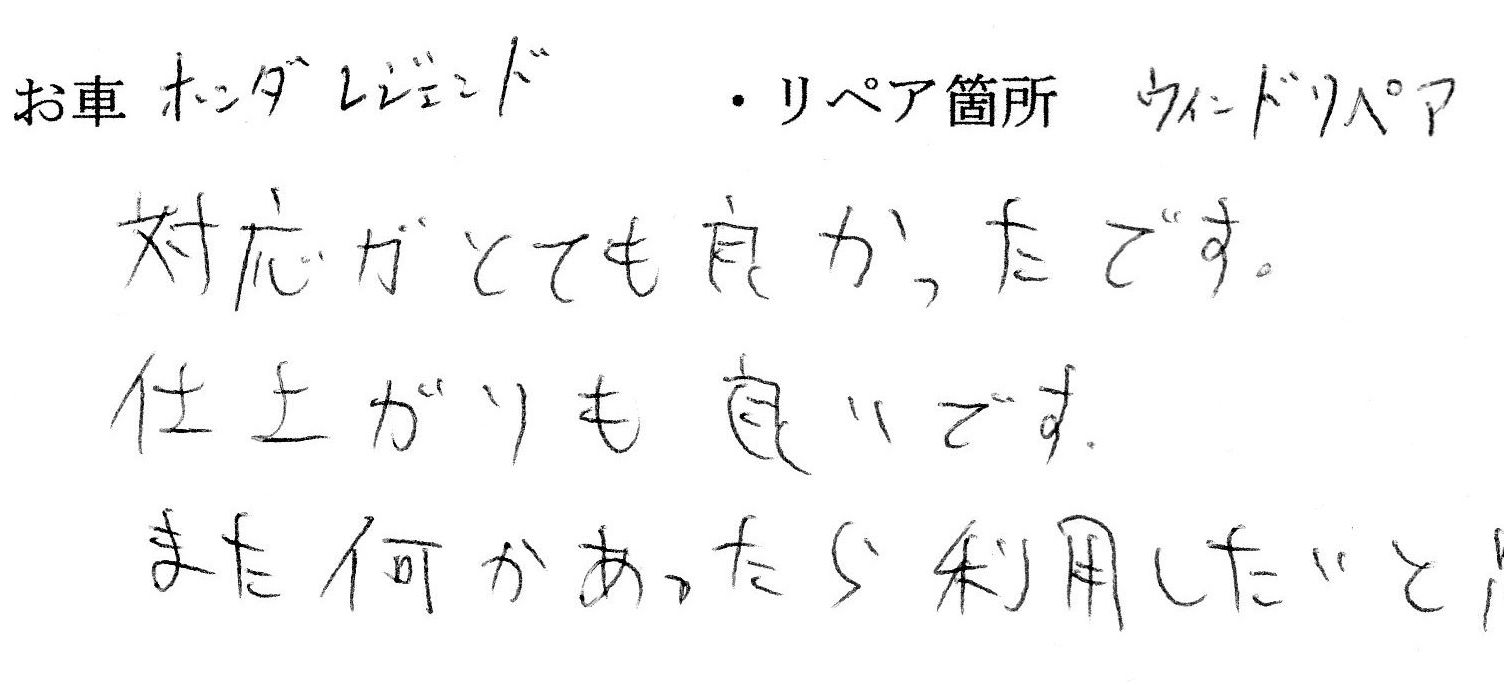 お車 ホンダ レジェンド ・リペア箇所 ウィンドリペア
対応がとても良かったです。
仕上がりも良いです.
また何かあったら利用したいと